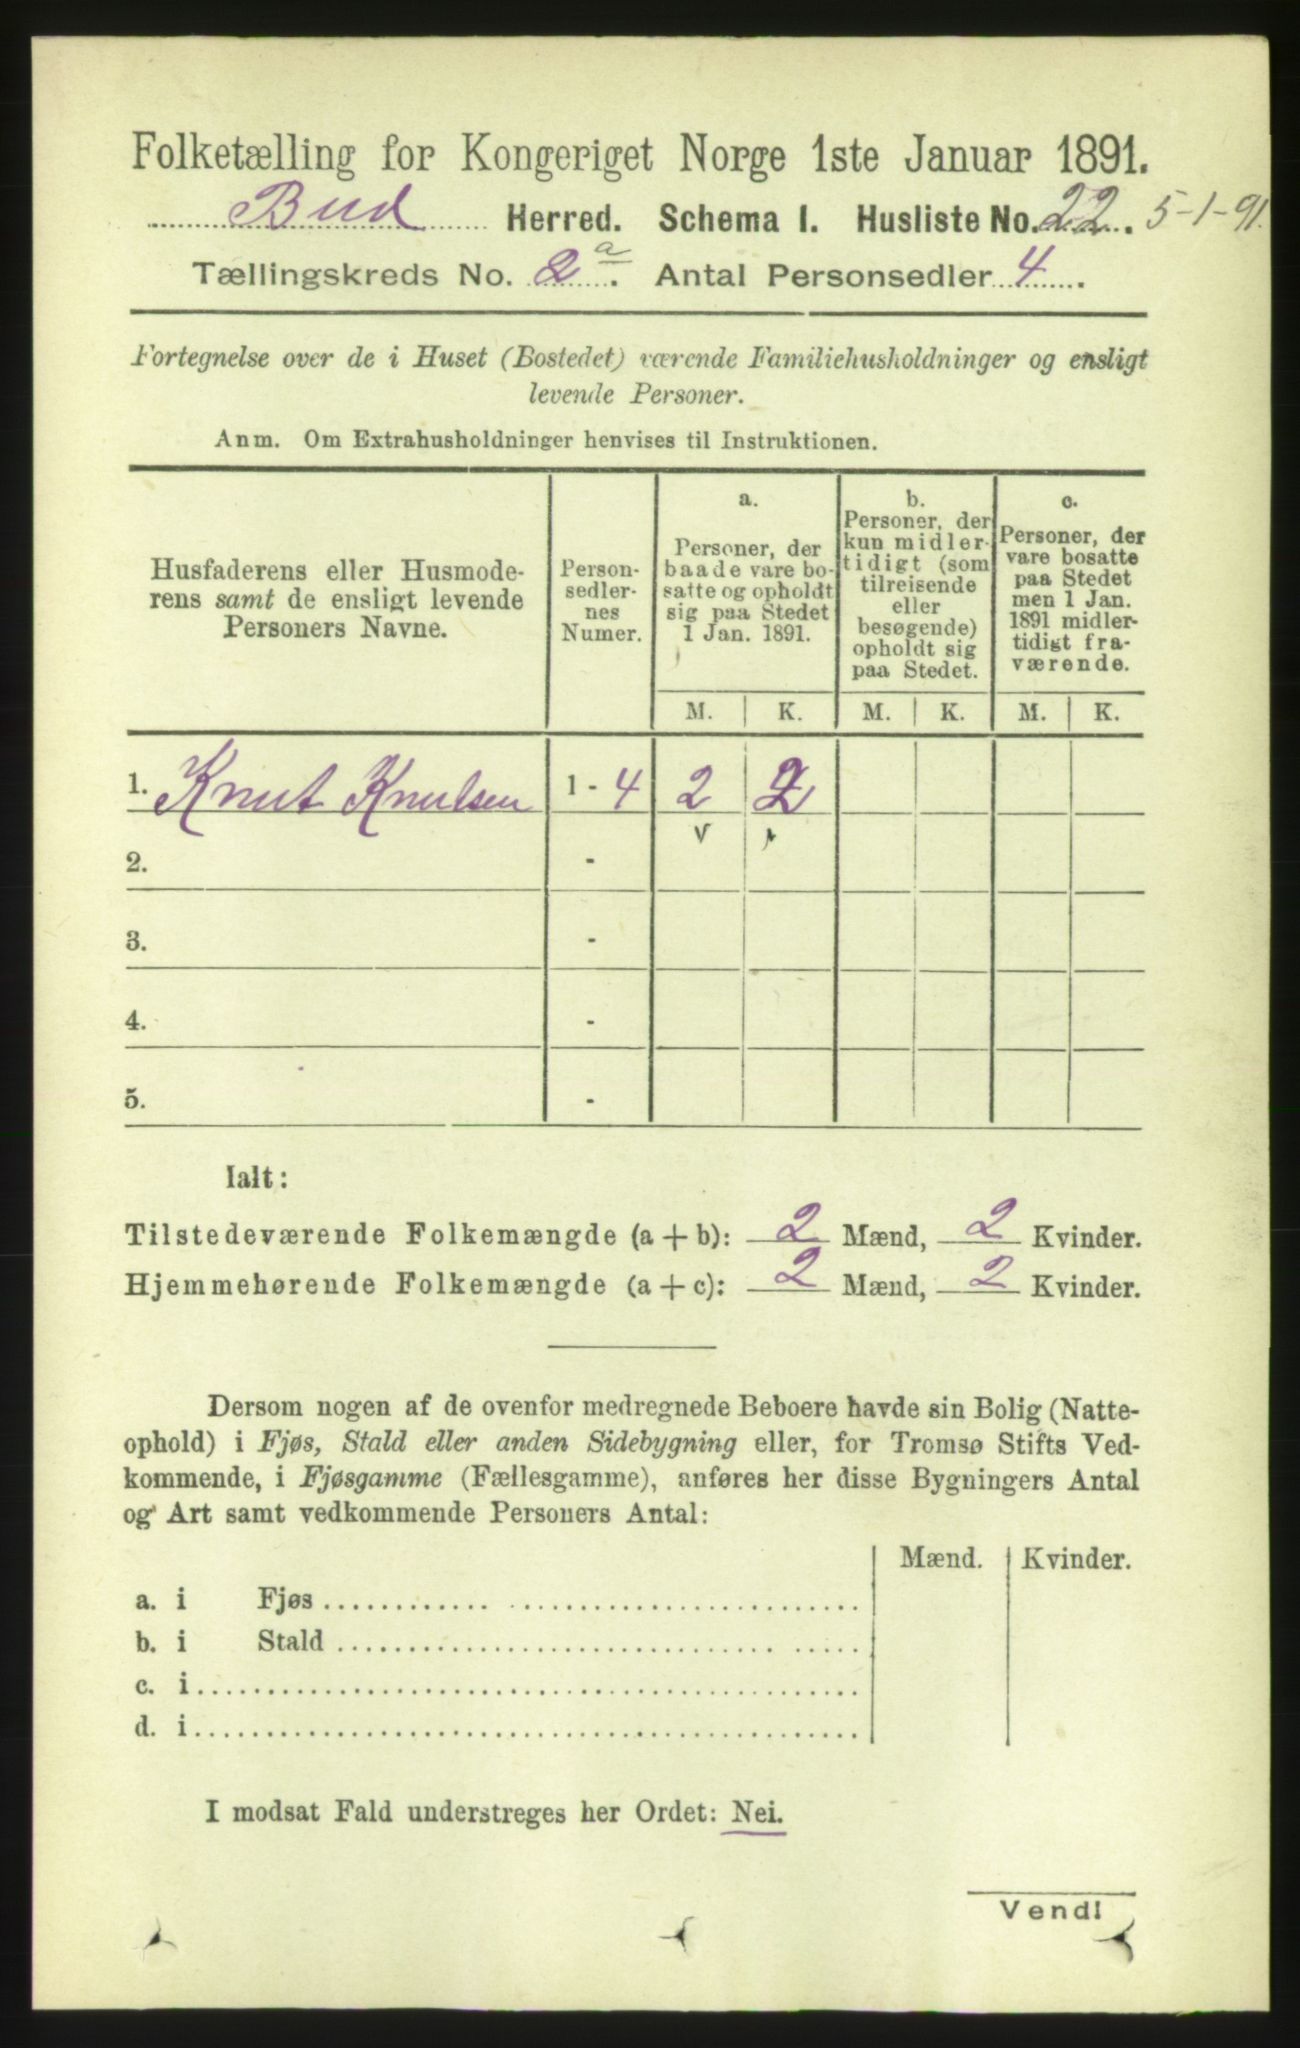 Folketælling for Kongeriget Norge 1ste Januar 1891.
Bud Herred. Schema I. Husliste No. 22. 5-1-91.
Tællingskreds No. 2 a. Antal Personsedler 4.
Fortegnelse over de i Huset (Bostedet) værende Familiehusholdninger og ensligt
levende Personer.
Anm. Om Extrahusholdninger henvises til Instruktionen.
Husfaderens eller Husmode-
rens samt de ensligt levende
Personers Navne.
Person-
sedler-
nes
Numer.
a.
Personer, der
baade vare bo-
satte og opholdt
sig paa Stedet
1 Jan. 1891.
b.
Personer, der
kun midler-
tidigt (som
tilreisende
eller
besøgende)
opholdt sig
paa Stedet.
c.
Personer, der
vare bosatte
paa Stedet
men 1 Jan.
1891 midler-
tidigt fra-
værende.
M. K. M. K. M. K.
1. Knut Knutsen 1 - 4 2 2
2. -
3. -
4. -
5. -
Ialt:
Tilstedeværende Folkemængde (a + b): 2 Mænd, 2 Kvinder.
Hjemmehørende Folkemængde (a + c): 2 Mænd, 2 Kvinder.
Dersom nogen af de ovenfor medregnede Beboere havde sin Bolig (Natte-
ophold) i Fjøs, Stald eller anden Sidebygning eller, for Tromsø Stifts Ved-
kommende, i Fjøsgamme (Fællesgamme), anføres her disse Bygningers Antal
og Art samt vedkommende Personers Antal:
Mænd. Kvinder.
a. i Fjøs
b. i Stald
c. i
d. i
I modsat Fald understreges her Ordet: Nei.
Vend!